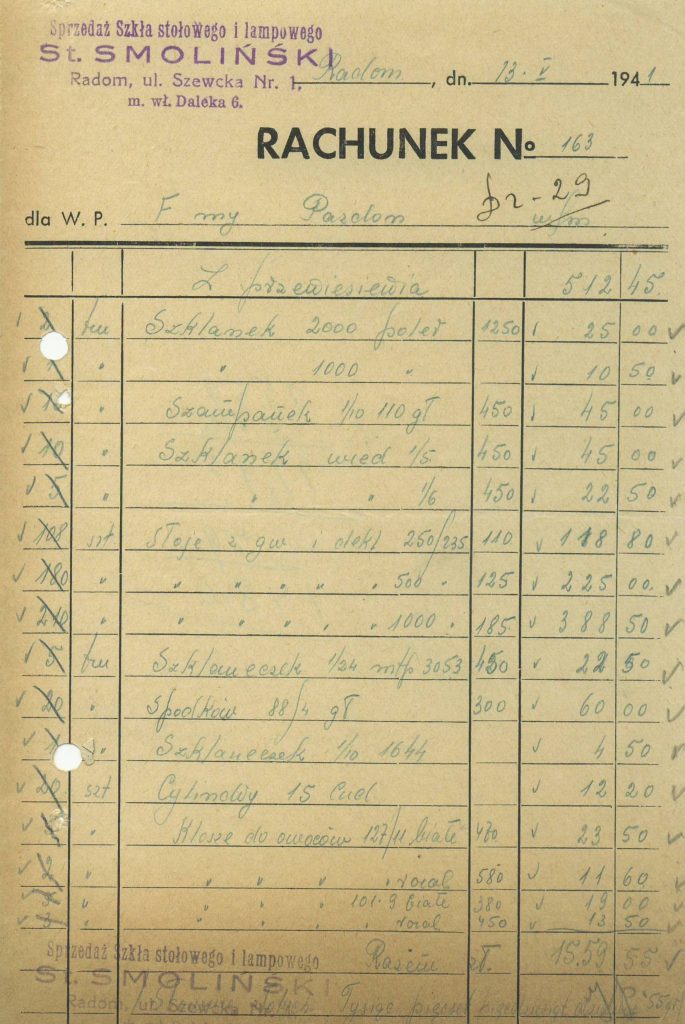 Sprzedaż Szkła stołowego i lampowego
St. SMOLIŃSKI
Radom, ul. Szewcka Nr. 1.
m. wł. Daleka 6.
Radom, dn. 13. V 1941
RACHUNEK No 163
dla W. P. F my Pazdon
Z przewiesiewia 512 45.
2 tuz Szklanek 2000 poler 1250 25 00
1 " " 1000 " 10 50
10 " Szampanek 1/10 110 gł 450 45 00
10 " Szklanek wied 1/5 450 45 00
5 " " " 1/6 450 22 50
108 szt Słoje z gw i dekl 250/235 110 118 80
180 " " " " " 500 " 125 225 00
210 " " " " " 1000 " 185 388 50
5 tuz Szklaneczek 1/24 3053 450 22 50
20 " Spodków 88/4 gł 300 60 00
1 " Szklaneczek 1/10 1644 4 50
20 szt Cylindry 15 12 20
5 " Klosze do owoców 127/11 białe 470 23 50
2 " " " " " rozal 580 11 60
5 " " 101.9 białe 380 19 00
3 " " " " rozal 450 13 50
Razem zł. 15.59 55
Sprzedaż Szkła stołowego i lampowego
St. SMOLIŃSKI
Radom, ul. Szewcka Nr. 1.
Tysiąc pięćset 55 gr